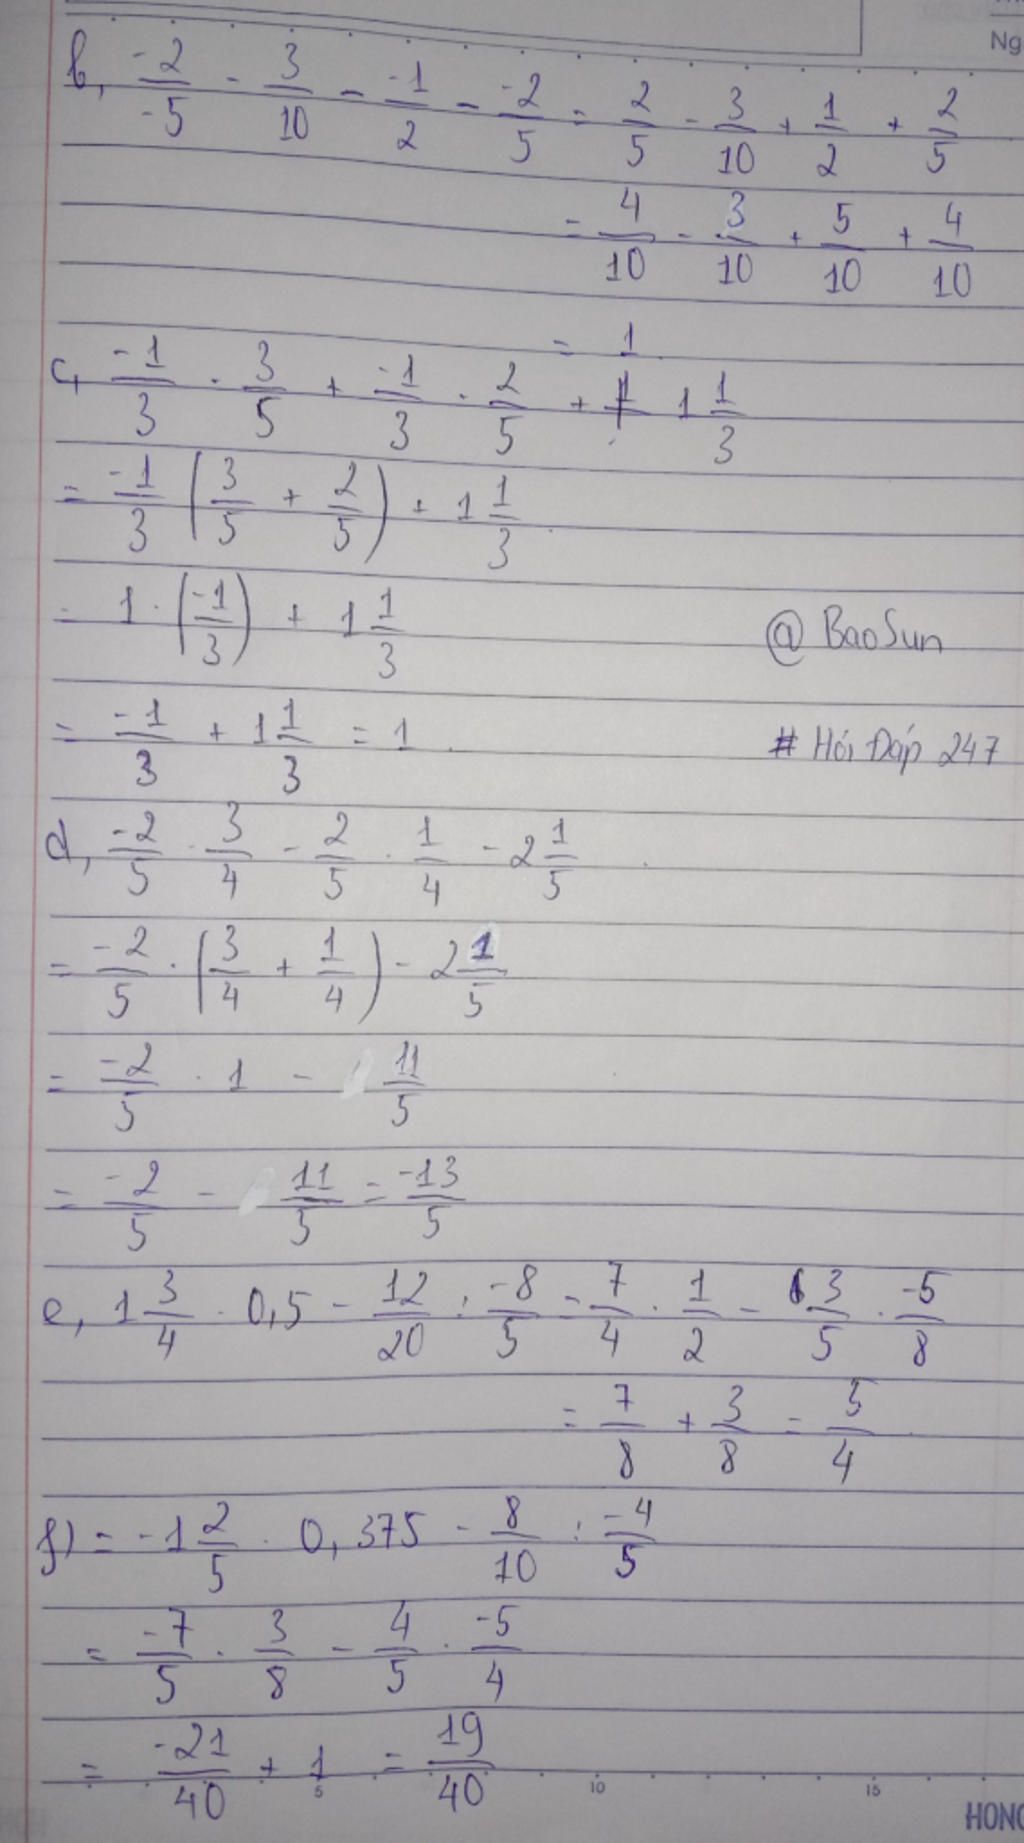 Ng
b, -2/-5 - 3/10 - -1/2 - -2/5 = 2/5 - 3/10 + 1/2 + 2/5
= 4/10 - 3/10 + 5/10 + 4/10
= 1
c, -1/3 . 3/5 + -1/3 . 2/5 + 1 1/3
= -1/3 (3/5 + 2/5) + 1 1/3
= 1 . (-1/3) + 1 1/3
@ BaoSun
= -1/3 + 1 1/3 = 1
# Hỏi Đáp 247
d, -2/5 . 3/4 - 2/5 . 1/4 - 2 1/5
= -2/5 . (3/4 + 1/4) - 2 1/5
= -2/5 . 1 - 11/5
= -2/5 - 11/5 = -13/5
e, 1 3/4 . 0,5 - 12/20 : -8/5 = 7/4 . 1/2 - 3/5 . -5/8
= 7/8 + 3/8 = 5/4
f) = -1 2/5 . 0,375 - 8/10 : -4/5
= -7/5 . 3/8 - 4/5 . -5/4
= -21/40 + 1 = 19/40
5 10 15
HONG